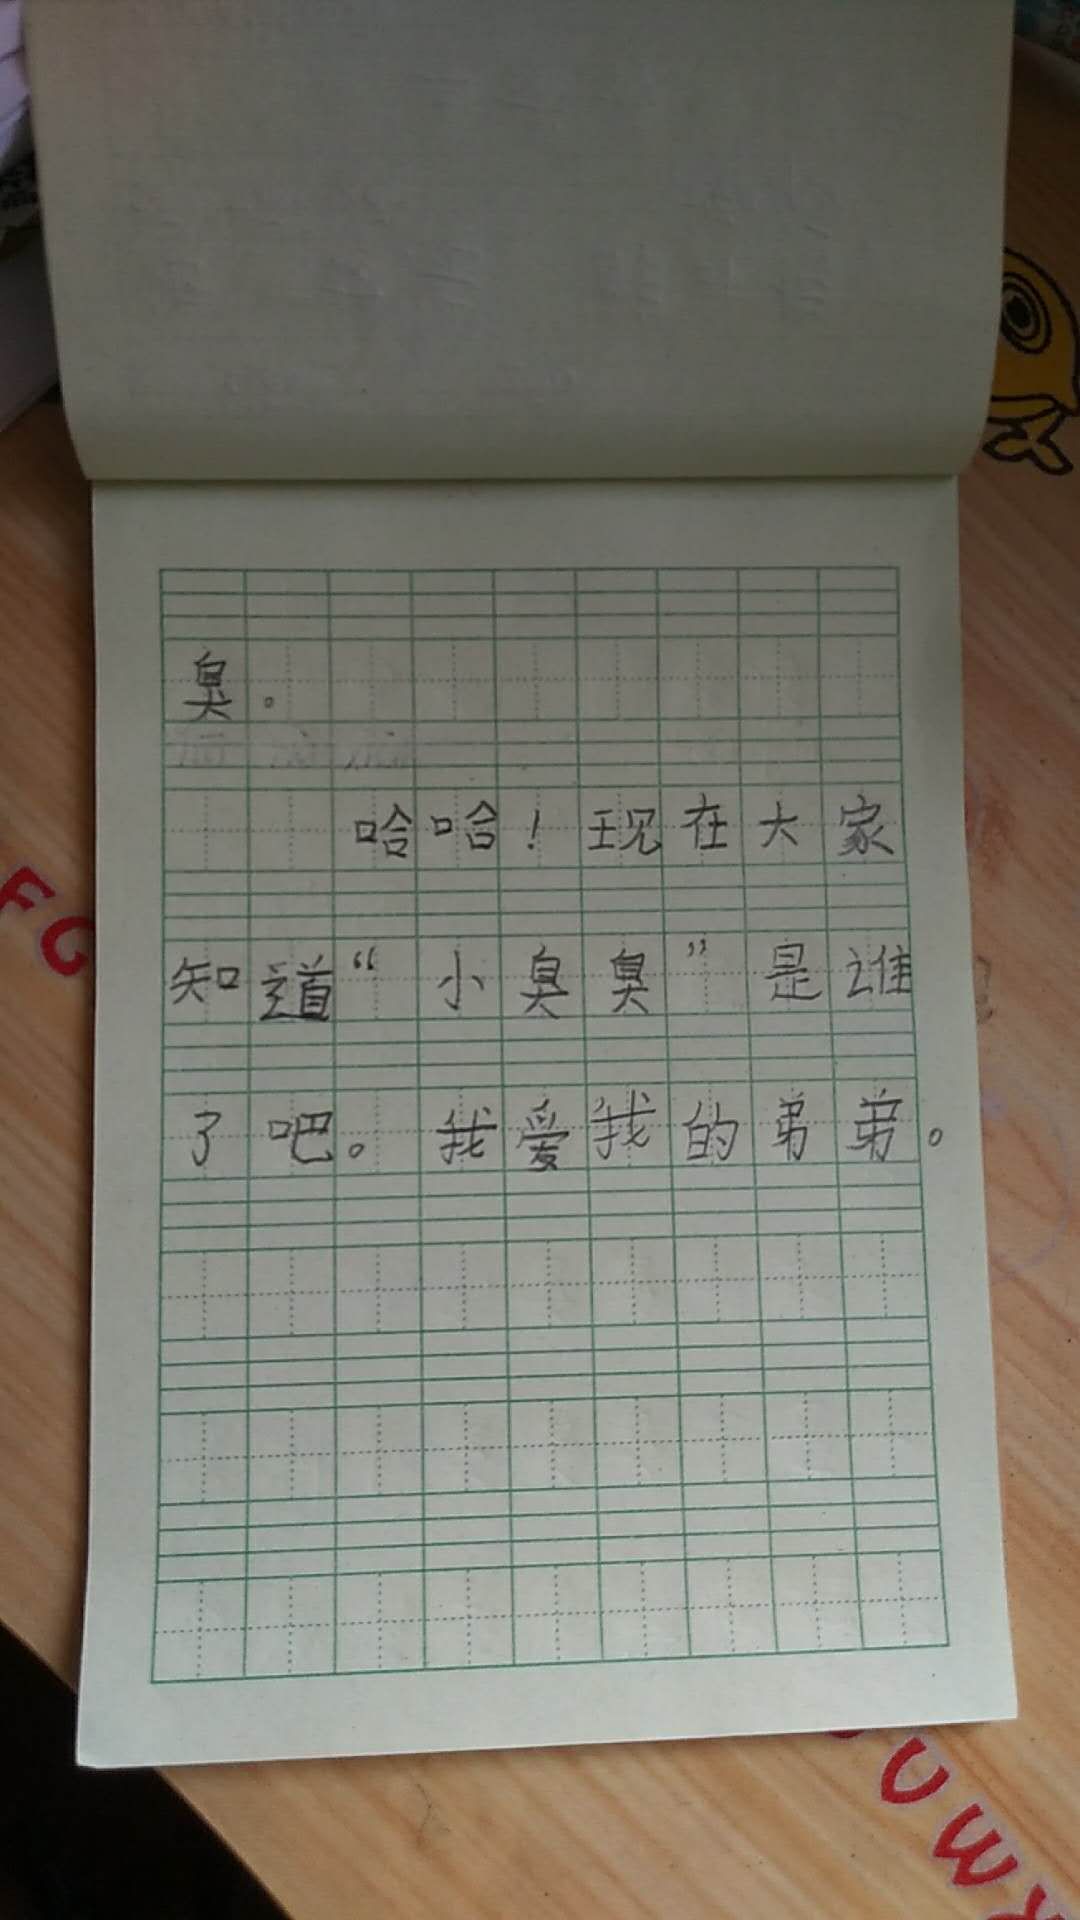 臭。
哈哈！现在大家
知道“小臭臭”是谁
了吧。我爱我的弟弟。